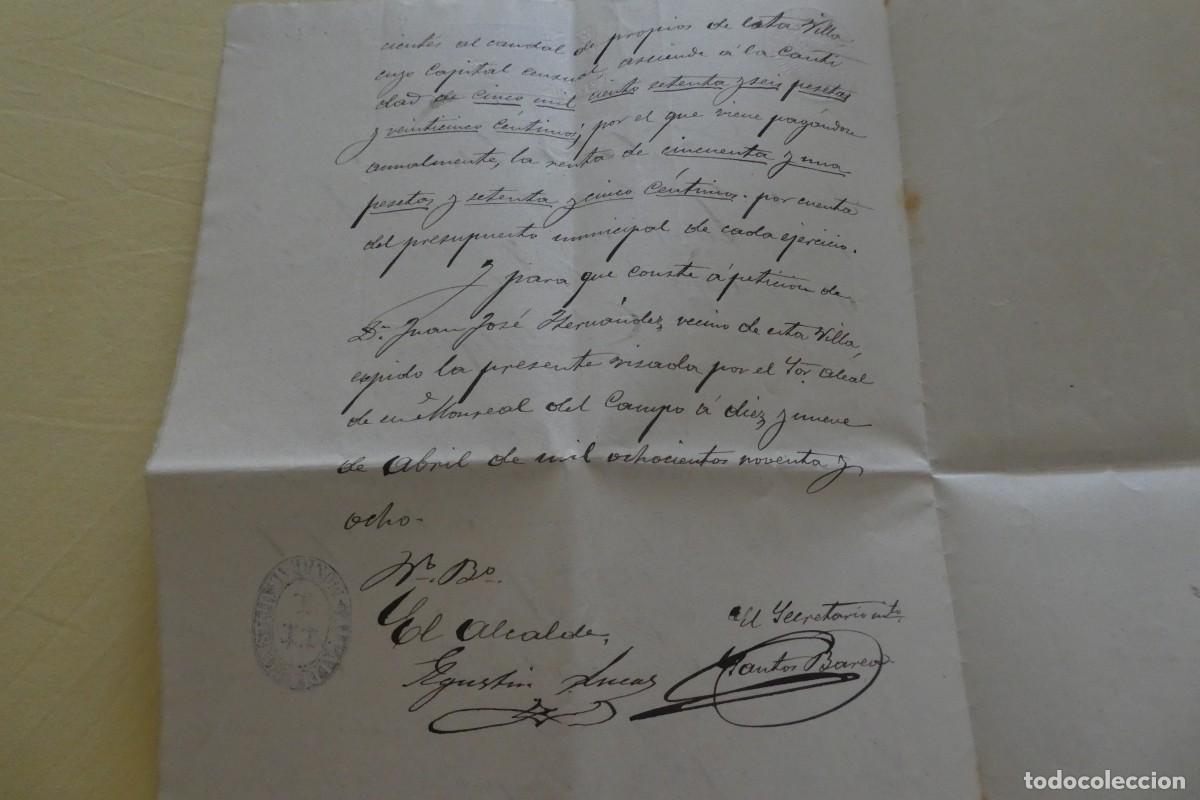 cientes al caudal de propios de esta Villa
cuyo capital censual, asciende á la Canti
dad de cinco mil ciento setenta y seis pesetas
y veinticinco céntimos, por el que viene pagándose
anualmente, la renta de cincuenta y una
pesetas y setenta y cinco céntimos. por cuenta
del presupuesto municipal de cada ejercicio.
Y para que conste á peticion de
Dn. Juan José Hernández, vecino de esta Villa,
expido la presente visada por el Sor. Alcal
de en Monreal del Campo á diez y nueve
de Abril de mil ochocientos noventa y
ocho.
Vo. Bo.
El Alcalde,
Agustin Lucas
El Secretario
Santos Barea
todocoleccion